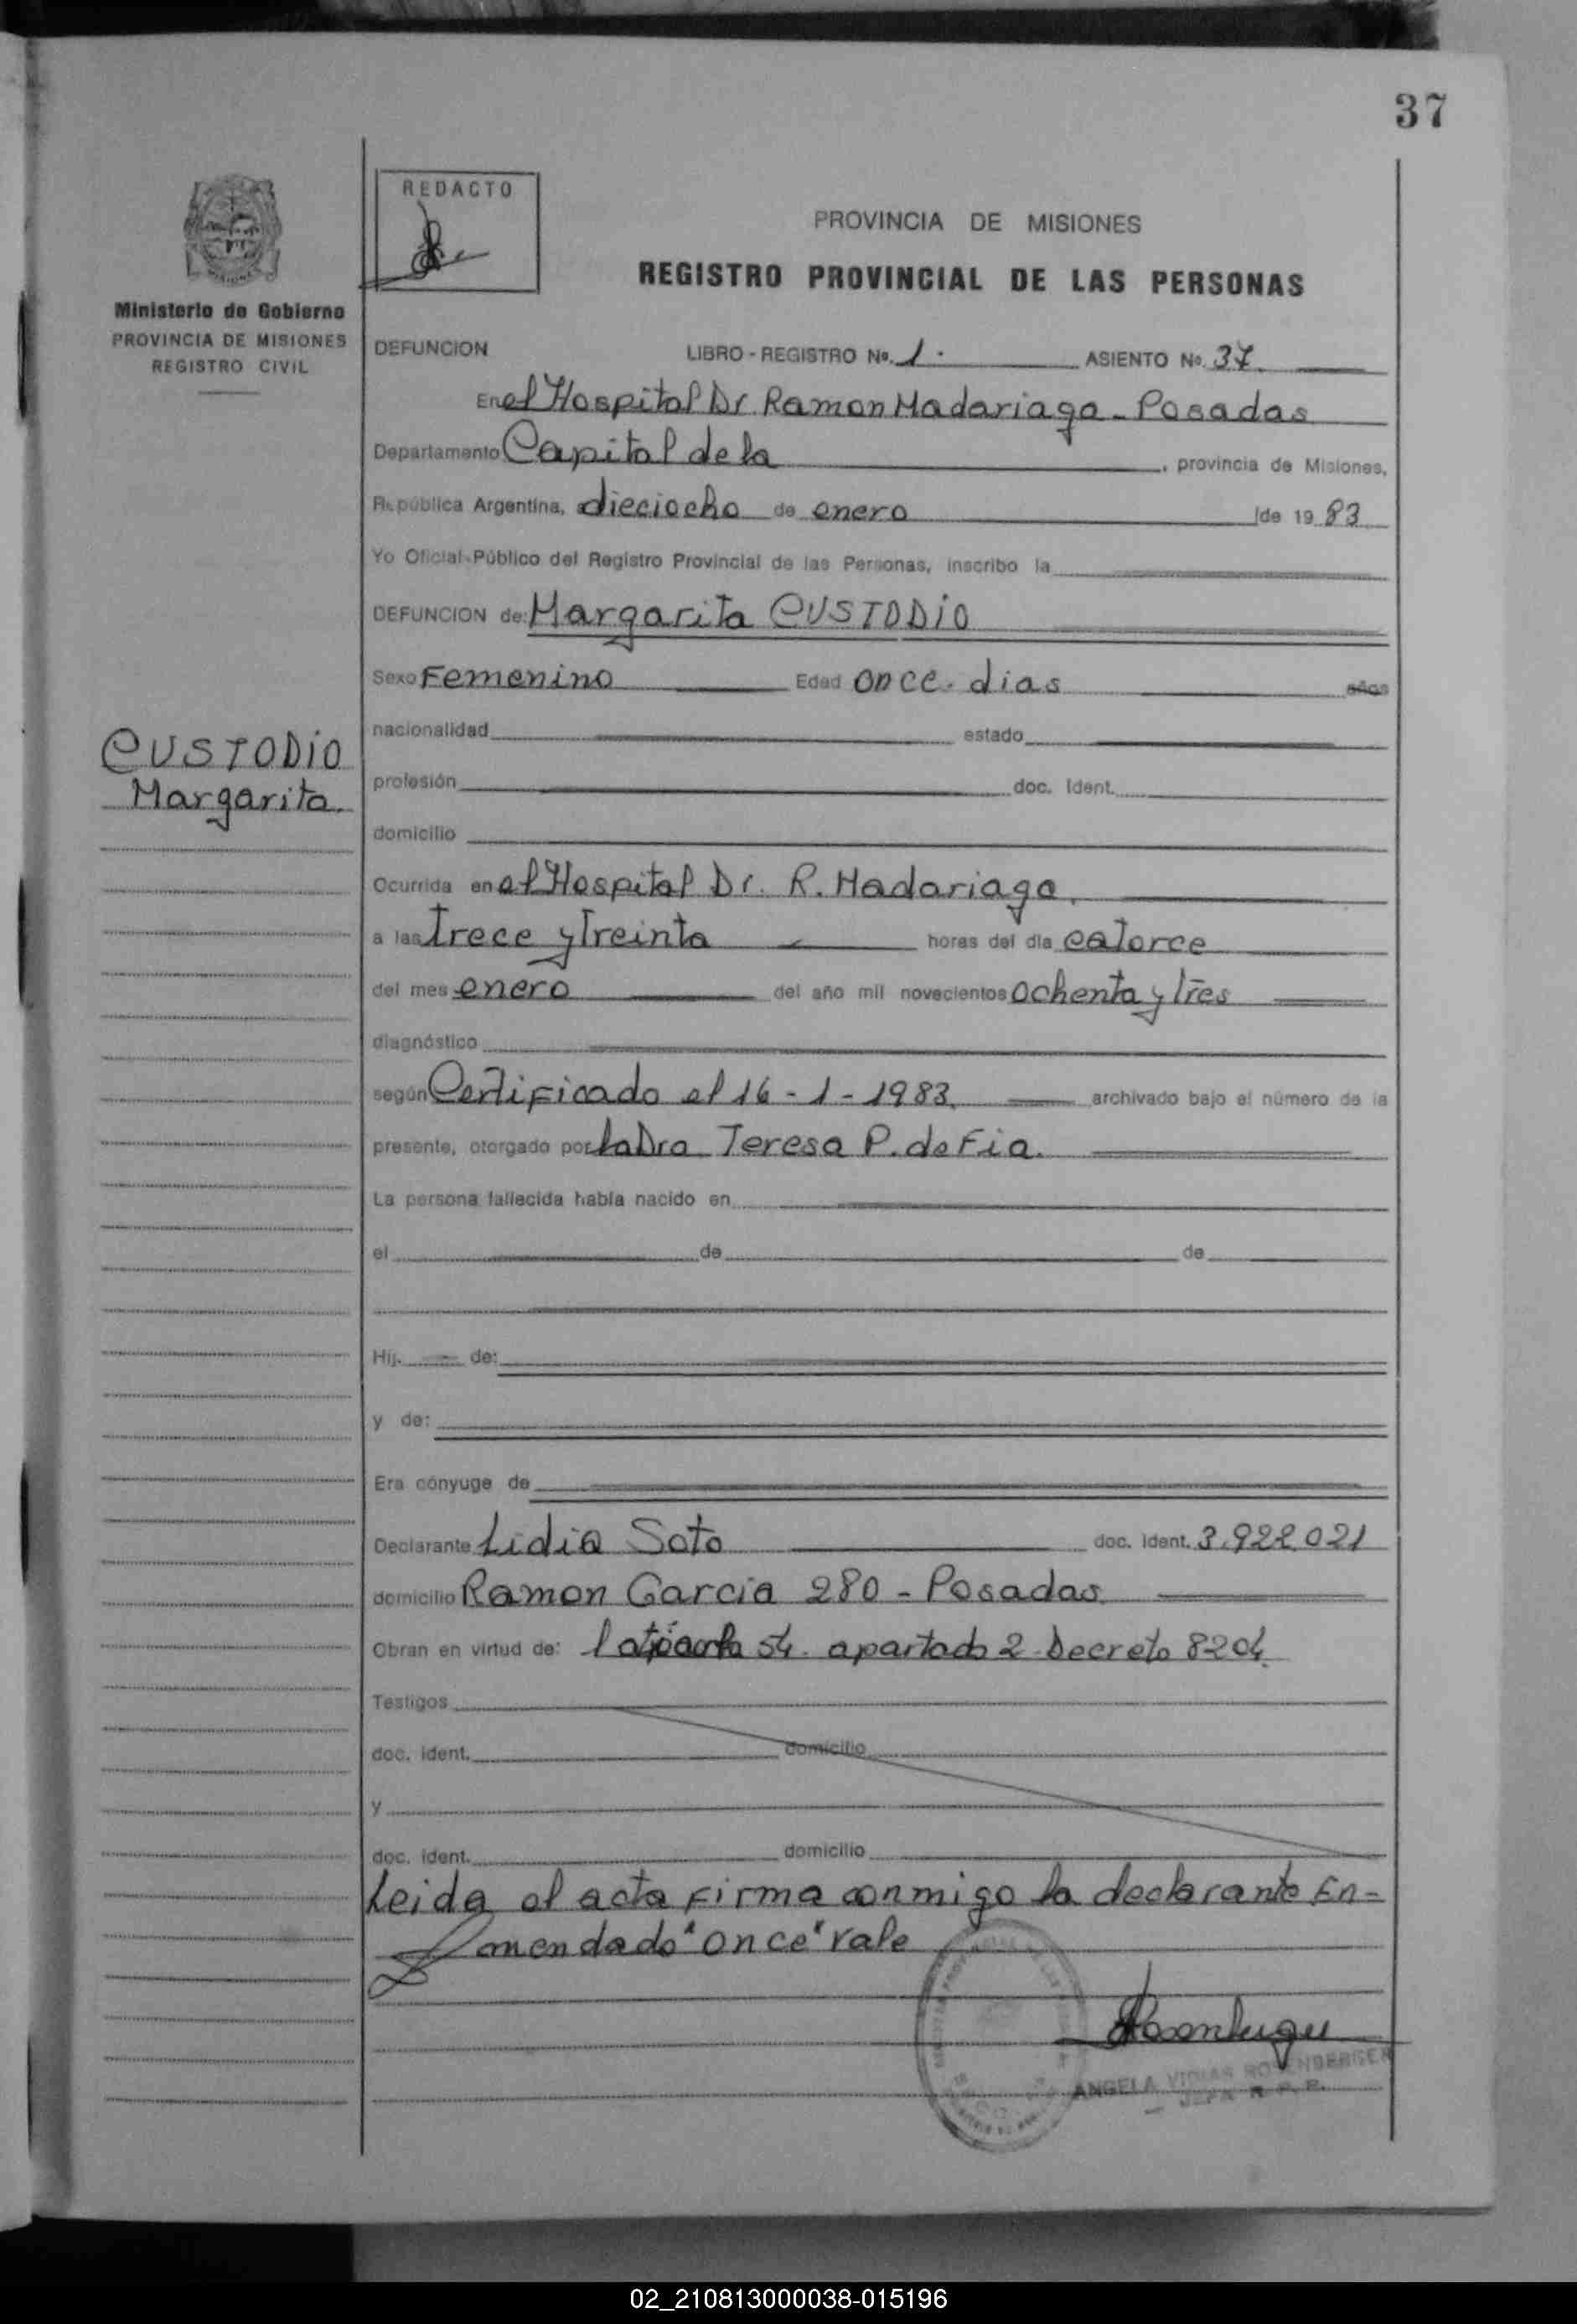 37
REDACTO
PROVINCIA DE MISIONES
REGISTRO PROVINCIAL DE LAS PERSONAS
Ministerio de Gobierno
PROVINCIA DE MISIONES
REGISTRO CIVIL
DEFUNCION LIBRO - REGISTRO Nº. 1. ASIENTO Nº. 37.
En el Hospital Dr. Ramon Madariaga - Posadas
Departamento Capital de la, provincia de Misiones,
República Argentina, dieciocho de enero de 19 83
Yo Oficial Público del Registro Provincial de las Personas, inscribo la
DEFUNCION de: Margarita CUSTODIO
Sexo Femenino Edad once dias años
nacionalidad estado
CUSTODIO
Margarita
profesión doc. Ident.
domicilio
Ocurrida en el Hospital Dr. R. Madariaga.
a las Trece y Treinta horas del día catorce
del mes enero del año mil novecientos ochenta y Tres
diagnóstico
según Certificado el 16 - 1 - 1983. archivado bajo el número de la
presente, otorgado por la Dra Teresa P. de Fia.
La persona fallecida había nacido en
el de de
Hij. de:
y de:
Era cónyuge de
Declarante Lidia Soto doc. Ident. 3.922.021
domicilio Ramon Garcia 280 - Posadas.
Obran en virtud de: 54. apartado 2. Decreto 8204.
Testigos
doc. ident. domicilio
y
doc. ident. domicilio
Leida el acta firma conmigo la declarante En-
mendado "once" vale
ANGELA ROSENBERGER
JEFA R. P. P.
02_210813000038-015196